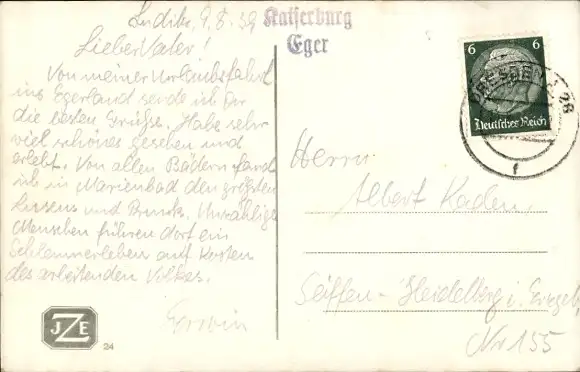 9.8.39
Lieber Vater!
Von meiner Urlaubsfahrt
ins Egerland sende ich Dir
die besten Grüße. Habe sehr
viel schönes gesehen und
erlebt. Von allen Bädern fand
ich in Marienbad den größten
Luxus und Prunk. Unzählige
Menschen führen dort ein
Schlemmerleben auf Kosten
des arbeitenden Volkes.
Erwin
Kaiserburg
Eger
6 6
Deutsches Reich
DRESDEN
28
f
Herrn
Albert Kaden
Seiffen-Heidelberg i. Erzgeb.
Nr 155
JZE
24